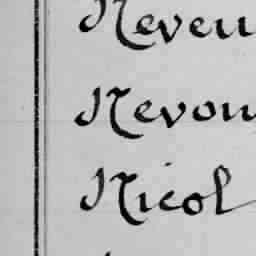 Neveu
Nevou
Nicol